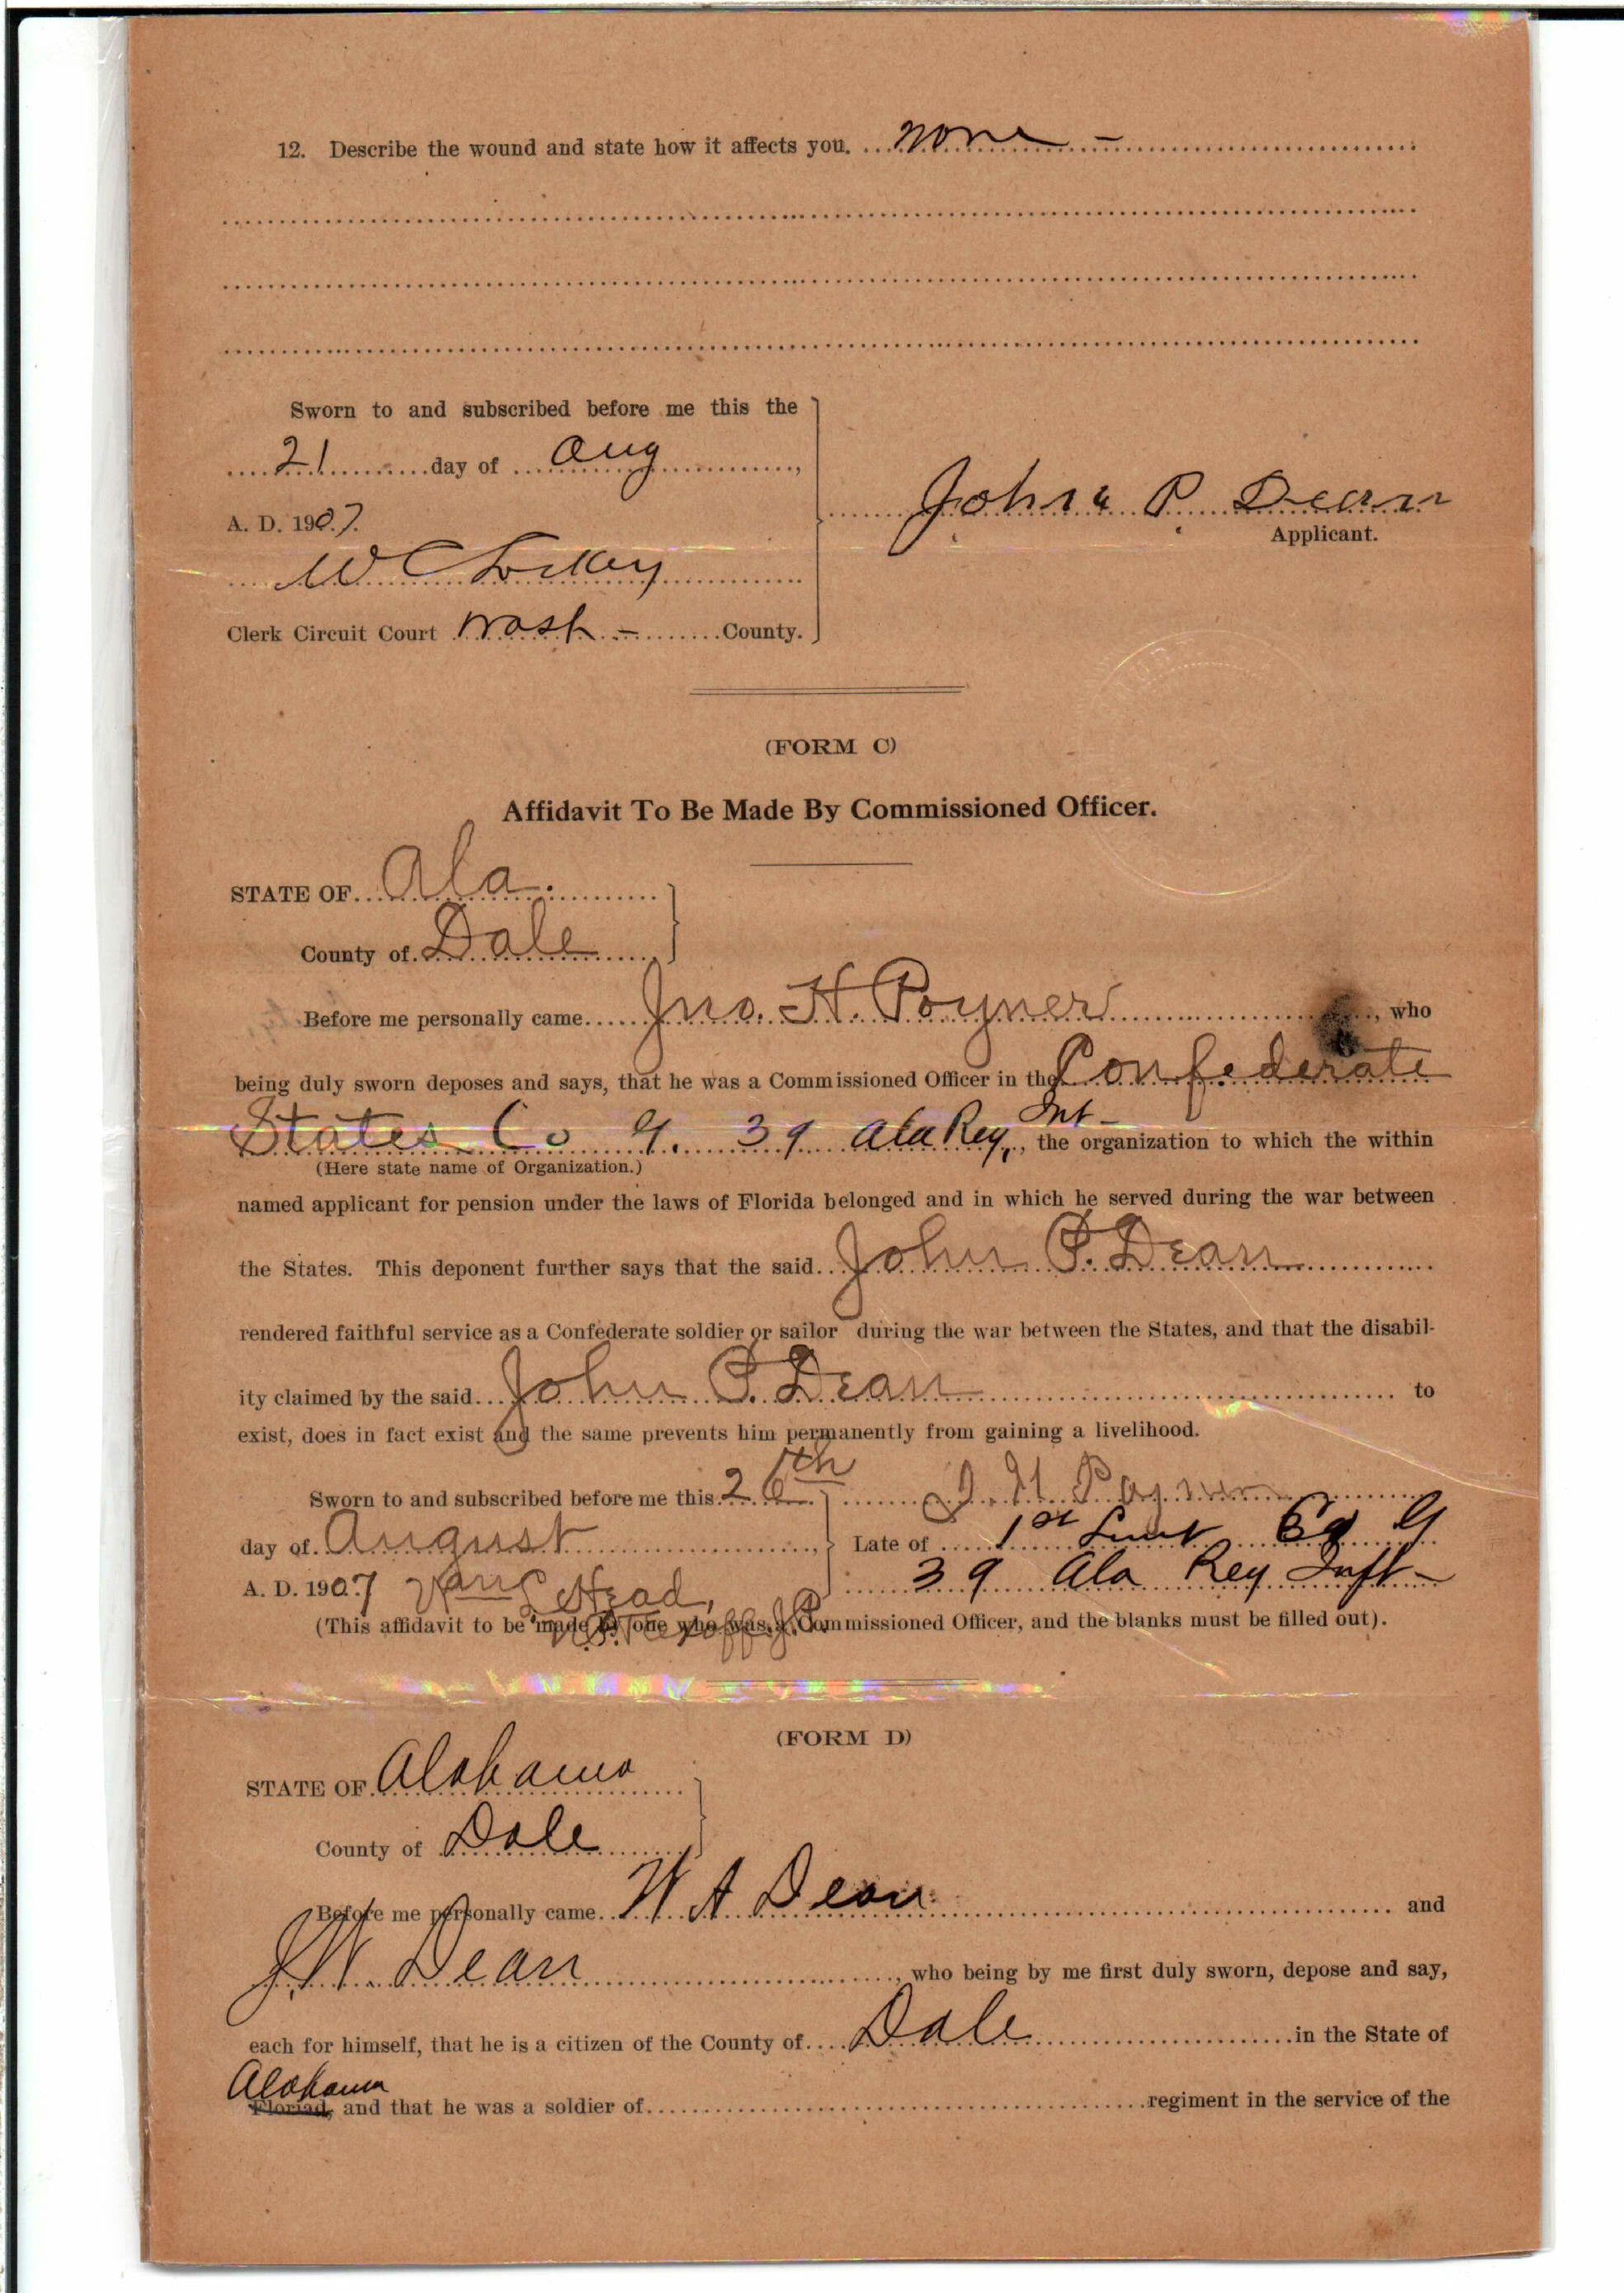 12. Describe the wound and state how it affects you. none -
Sworn to and subscribed before me this the
21 day of Aug,
A. D. 1907.
John P. Dean
Applicant.
W C Lockey
Clerk Circuit Court Wash - County.
(FORM C)
Affidavit To Be Made By Commissioned Officer.
STATE OF Ala.
County of Dale
Before me personally came Jno. H. Poyner, who
being duly sworn deposes and says, that he was a Commissioned Officer in the Confederate
States Co G. 39 Ala Reg, Inf - the organization to which the within
(Here state name of Organization.)
named applicant for pension under the laws of Florida belonged and in which he served during the war between
the States. This deponent further says that the said John P. Dean
rendered faithful service as a Confederate soldier or sailor during the war between the States, and that the disabil-
ity claimed by the said John P. Dean to
exist, does in fact exist and the same prevents him permanently from gaining a livelihood.
Sworn to and subscribed before me this 26th J. H. Poyner
day of August, Late of 1st Lieut Co G
A. D. 1907 39 Ala Reg Inft -
(This affidavit to be made by one who was a Commissioned Officer, and the blanks must be filled out).
(FORM D)
STATE OF Alabama
County of Dale
Before me personally came W A Dean and
J. W. Dean, who being by me first duly sworn, depose and say,
each for himself, that he is a citizen of the County of Dale in the State of
Alabama
Floriad, and that he was a soldier of regiment in the service of the